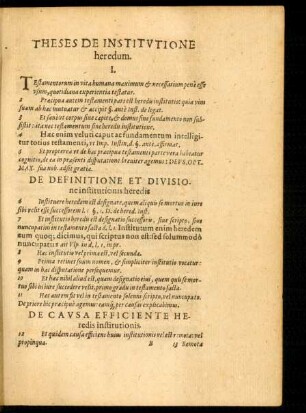 THESES DE INSTITVTIONE
heredum.
I.
TEstamentorum in vita humana maximum & necessarium penè esse
vsum, quotidiana experientia testatur.
2 Præcipua autem testamenti pars est heredis institutio: quia vim
suam ab hac mutuatur & accipit §. antè Inst. de legat.
3 Et sicut nec corpus sine capite, & domus sine fundamento non sub-
sistit: ita nec testamentum sine heredis institutione.
4 Hæc enim veluti caput ac fundamentum intelligitur
totius testamenti, vt Imp. Iustin. d. §. ante. affirmat.
5 Et propterea cùm de hac præcipua testamenti parte vera habeatur
cognitio, de ea in præsenti disputatione breuiter agemus: DEVS OPT.
MAX. sua nob. adsit gratia.
DE DEFINITIONE ET DIVISIO-
ne institutionis heredis
6 Instituere heredem est designare, quem aliquis se mortuo in iure
sibi velit esse successorem l. 1. §. 1. D. de hered. inst.
7 Et institutio heredis est designatio successoris, siue scripto, siue
nuncupatim in testamento facta d. l. 1. Institutum enim heredem
eum quoque dicimus, qui scriptus non est: sed solummodò
nuncupatus ait Vlp in d. l. 1. in pr.
8 Hæc institutio vel prima est, vel secunda.
9 Prima retinet suum nomen, & simpliciter institutio vocatur:
quam in hac disputatione persequemur.
10 Et hæc nihil aliud est, quam designatio eius, quem quis se mor-
tuo sibi in iure succedere velit, primo gradu in testamento facta.
11 Hæc autem fit vel in testamento solenni scripto, vel nuncupato.
De priore hic præcipuè agemus: eamque per causas explicabimus.
DE CAVSA EFFICIENTE HE-
redis institutionis
12 Et quidem causa efficiens huius institutionis vel est remota: vel
propinqua.
B ij Remota